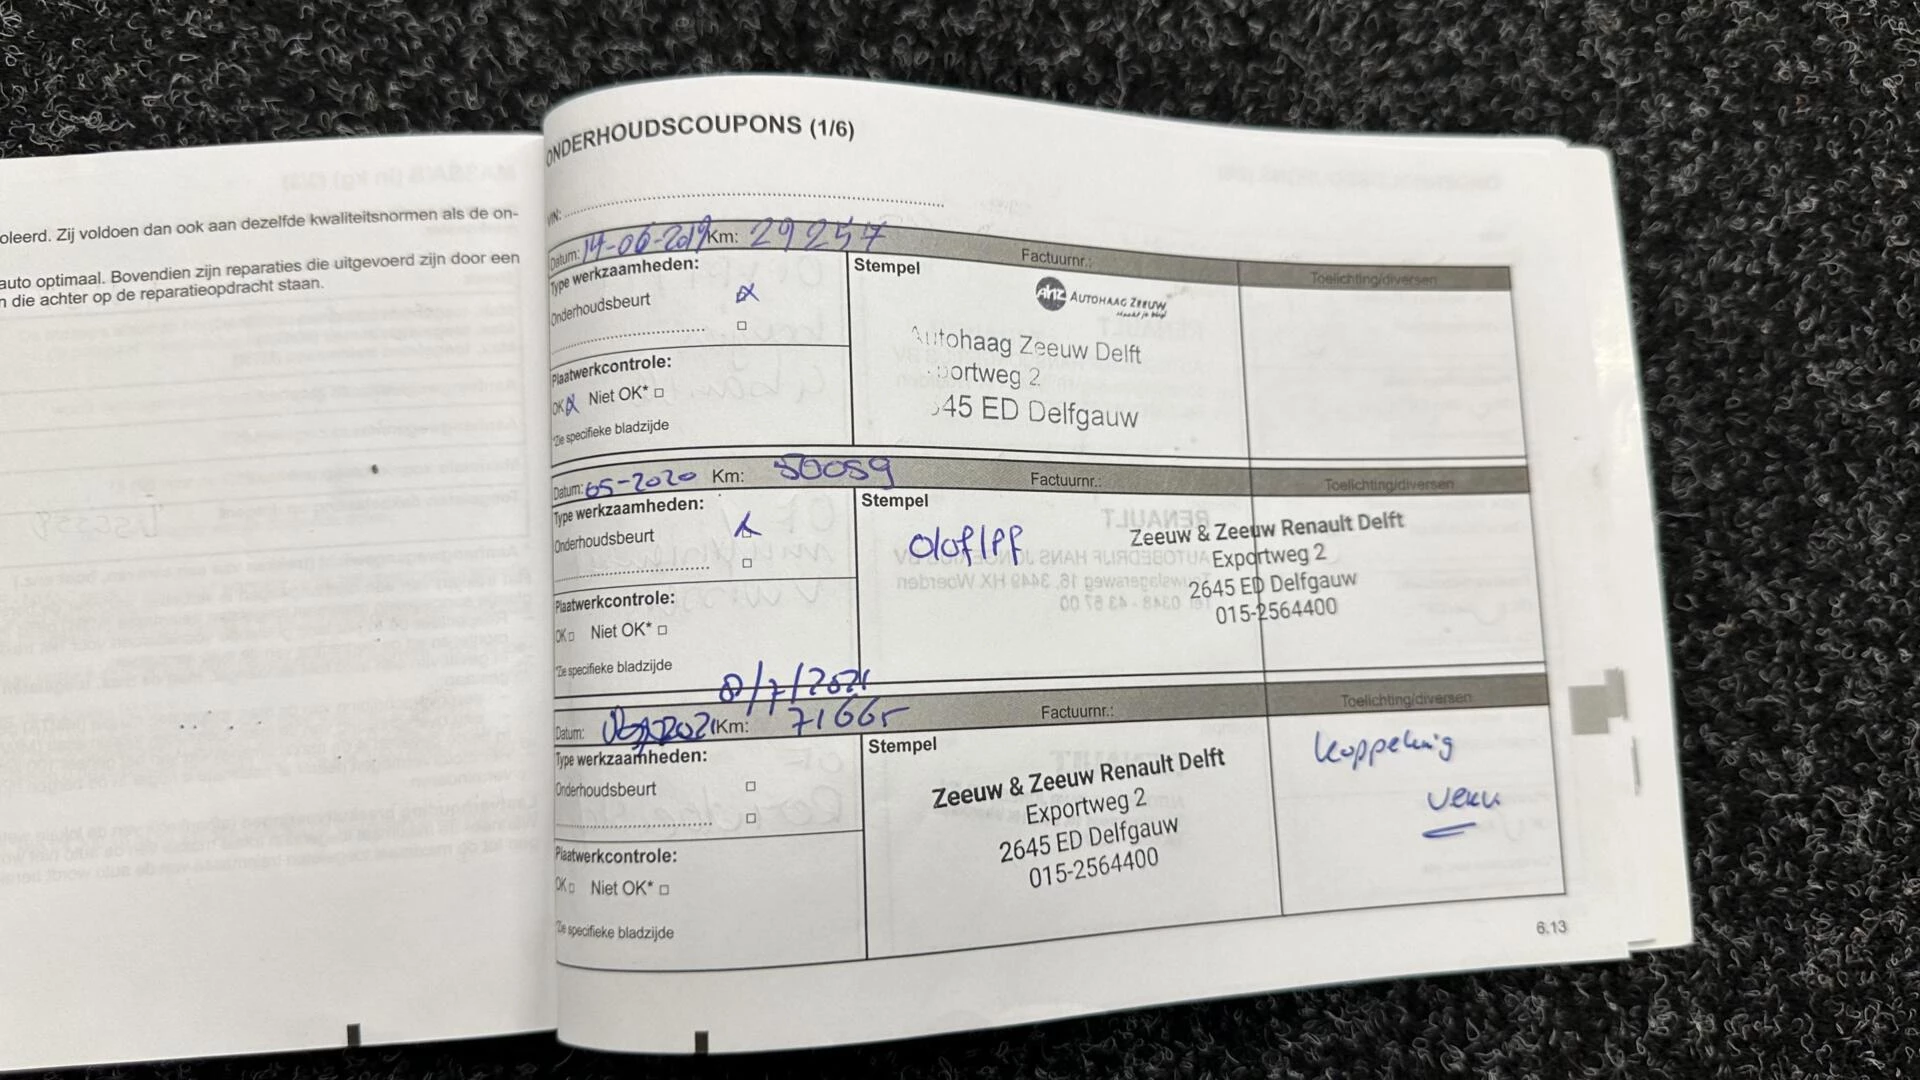 oleerd. Zij voldoen dan ook aan dezelfde kwaliteitsnormen als de on-
auto optimaal. Bovendien zijn reparaties die uitgevoerd zijn door een
n die achter op de reparatieopdracht staan.
ONDERHOUDSCOUPONS (1/6)
VIN:
Datum: 14-06-2019 Km: 29257 Factuurnr.: Toelichting/diversen
Type werkzaamheden:
Onderhoudsbeurt
Plaatwerkcontrole:
OK Niet OK*
*Zie specifieke bladzijde
Stempel
AUTOHAAG ZEEUW
Autohaag Zeeuw Delft
portweg 2
45 ED Delfgauw
Datum: 05-2020 Km: 50059 Factuurnr.: Toelichting/diversen
Type werkzaamheden:
Onderhoudsbeurt
Plaatwerkcontrole:
OK Niet OK*
*Zie specifieke bladzijde
Stempel
Zeeuw & Zeeuw Renault Delft
Exportweg 2
2645 ED Delfgauw
015-2564400
8/7/2021
Datum: Km: 71665 Factuurnr.: Toelichting/diversen
Type werkzaamheden:
Onderhoudsbeurt
Plaatwerkcontrole:
OK Niet OK*
*Zie specifieke bladzijde
Stempel
Zeeuw & Zeeuw Renault Delft
Exportweg 2
2645 ED Delfgauw
015-2564400
koppeling
6.13